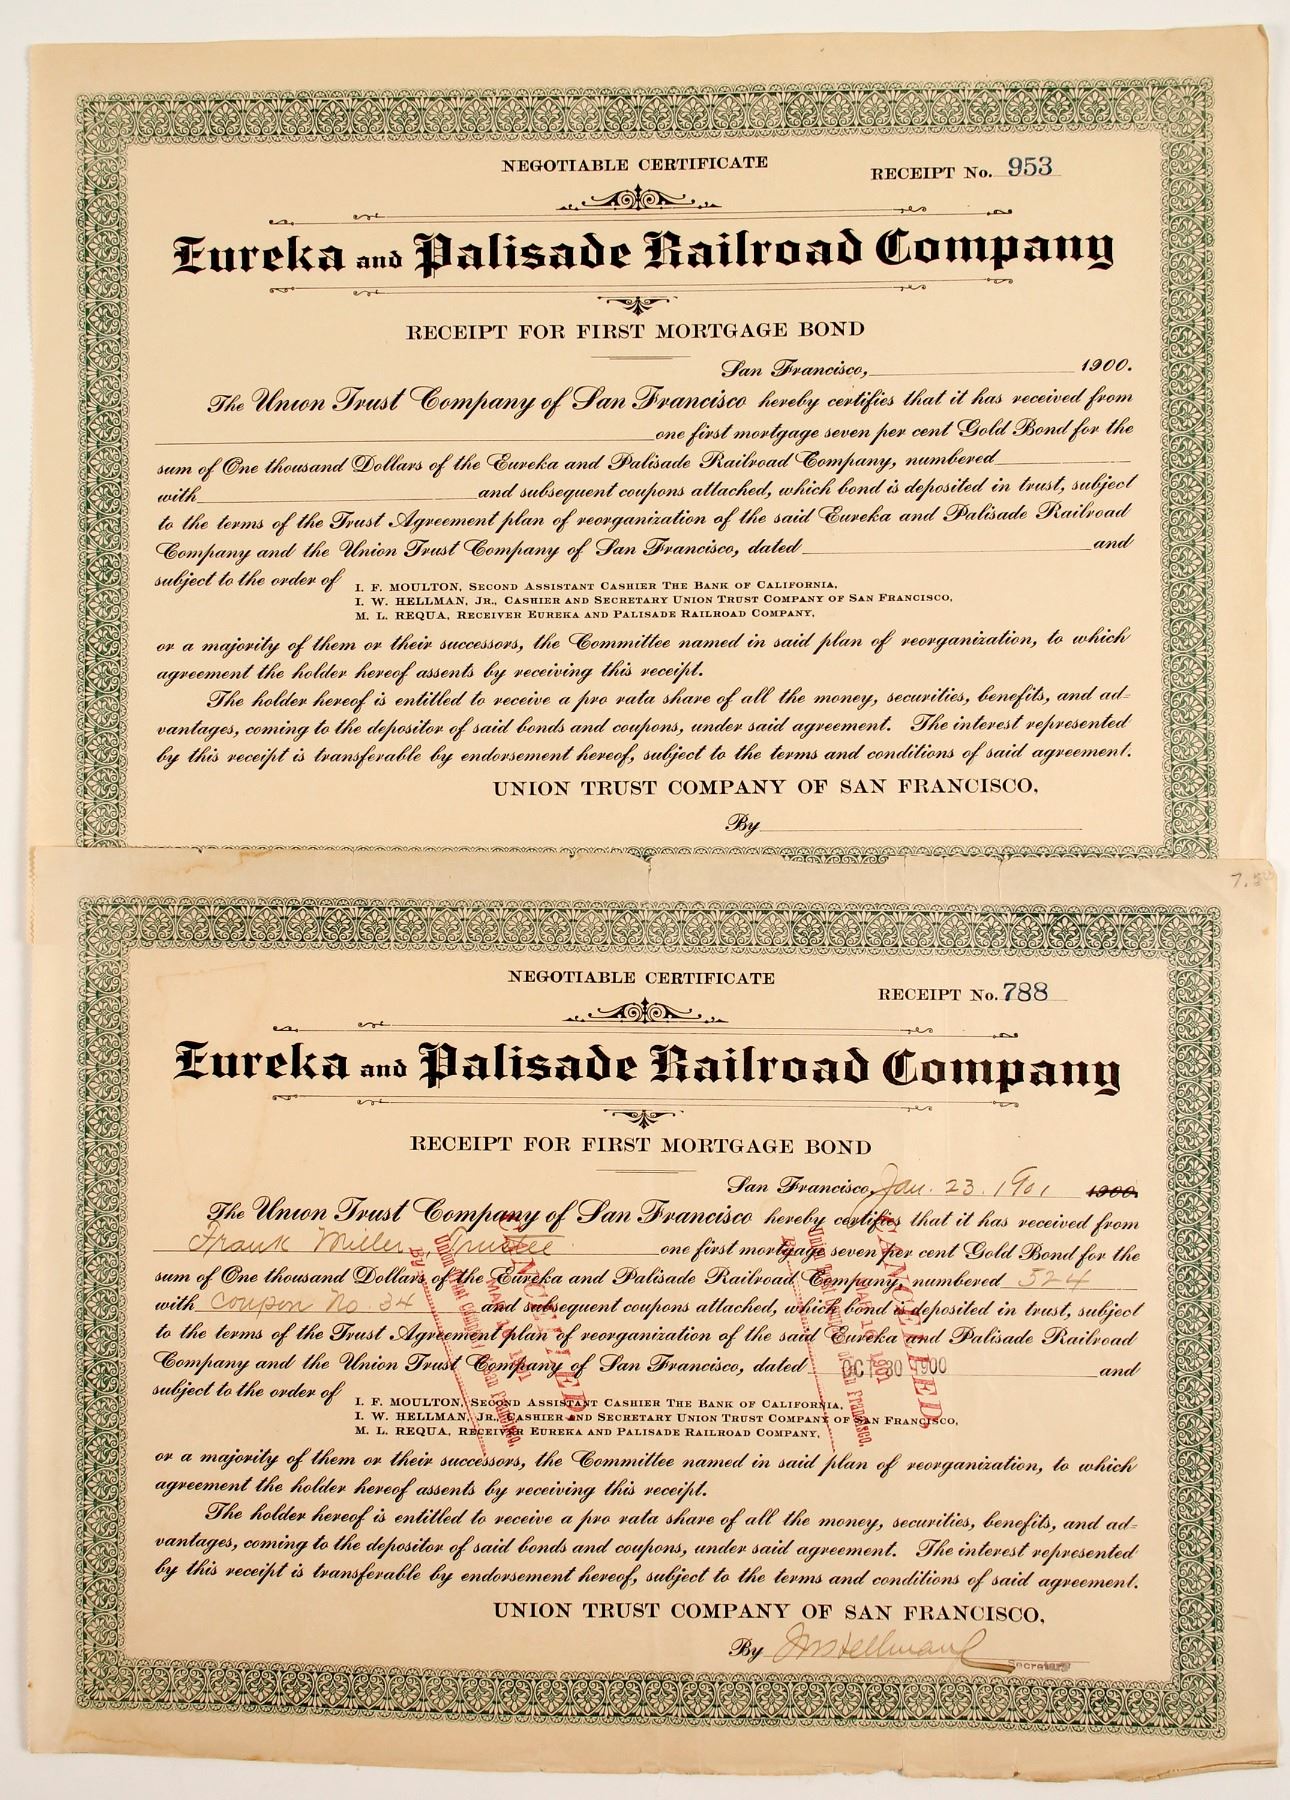 NEGOTIABLE CERTIFICATE
RECEIPT No. 953
Eureka and Palisade Railroad Company
RECEIPT FOR FIRST MORTGAGE BOND
San Francisco, 1900.
The Union Trust Company of San Francisco hereby certifies that it has received from
one first mortgage seven per cent Gold Bond for the
sum of One thousand Dollars of the Eureka and Palisade Railroad Company, numbered
with and subsequent coupons attached, which bond is deposited in trust, subject
to the terms of the Trust Agreement plan of reorganization of the said Eureka and Palisade Railroad
Company and the Union Trust Company of San Francisco, dated and
subject to the order of
I. F. MOULTON, SECOND ASSISTANT CASHIER THE BANK OF CALIFORNIA,
I. W. HELLMAN, JR., CASHIER AND SECRETARY UNION TRUST COMPANY OF SAN FRANCISCO,
M. L. REQUA, RECEIVER EUREKA AND PALISADE RAILROAD COMPANY,
or a majority of them or their successors, the Committee named in said plan of reorganization, to which
agreement the holder hereof assents by receiving this receipt.
The holder hereof is entitled to receive a pro rata share of all the money, securities, benefits, and ad=
vantages, coming to the depositor of said bonds and coupons, under said agreement. The interest represented
by this receipt is transferable by endorsement hereof, subject to the terms and conditions of said agreement.
UNION TRUST COMPANY OF SAN FRANCISCO,
By
NEGOTIABLE CERTIFICATE
RECEIPT No. 788
Eureka and Palisade Railroad Company
RECEIPT FOR FIRST MORTGAGE BOND
San Francisco, Jan. 23. 1901 1900.
The Union Trust Company of San Francisco hereby certifies that it has received from
Frank Miller, Trustee one first mortgage seven per cent Gold Bond for the
sum of One thousand Dollars of the Eureka and Palisade Railroad Company, numbered 524
with Coupon No. 34 and subsequent coupons attached, which bond is deposited in trust, subject
to the terms of the Trust Agreement plan of reorganization of the said Eureka and Palisade Railroad
Company and the Union Trust Company of San Francisco, dated OCT 30 1900 and
subject to the order of
I. F. MOULTON, SECOND ASSISTANT CASHIER THE BANK OF CALIFORNIA,
I. W. HELLMAN, JR., CASHIER AND SECRETARY UNION TRUST COMPANY OF SAN FRANCISCO,
M. L. REQUA, RECEIVER EUREKA AND PALISADE RAILROAD COMPANY,
or a majority of them or their successors, the Committee named in said plan of reorganization, to which
agreement the holder hereof assents by receiving this receipt.
The holder hereof is entitled to receive a pro rata share of all the money, securities, benefits, and ad=
vantages, coming to the depositor of said bonds and coupons, under said agreement. The interest represented
by this receipt is transferable by endorsement hereof, subject to the terms and conditions of said agreement.
UNION TRUST COMPANY OF SAN FRANCISCO,
By I W Hellman Jr
Secretary
CANCELLED
Union Trust Company of San Francisco.
By
CANCELLED
1901
Union Trust Company of San Francisco.
By